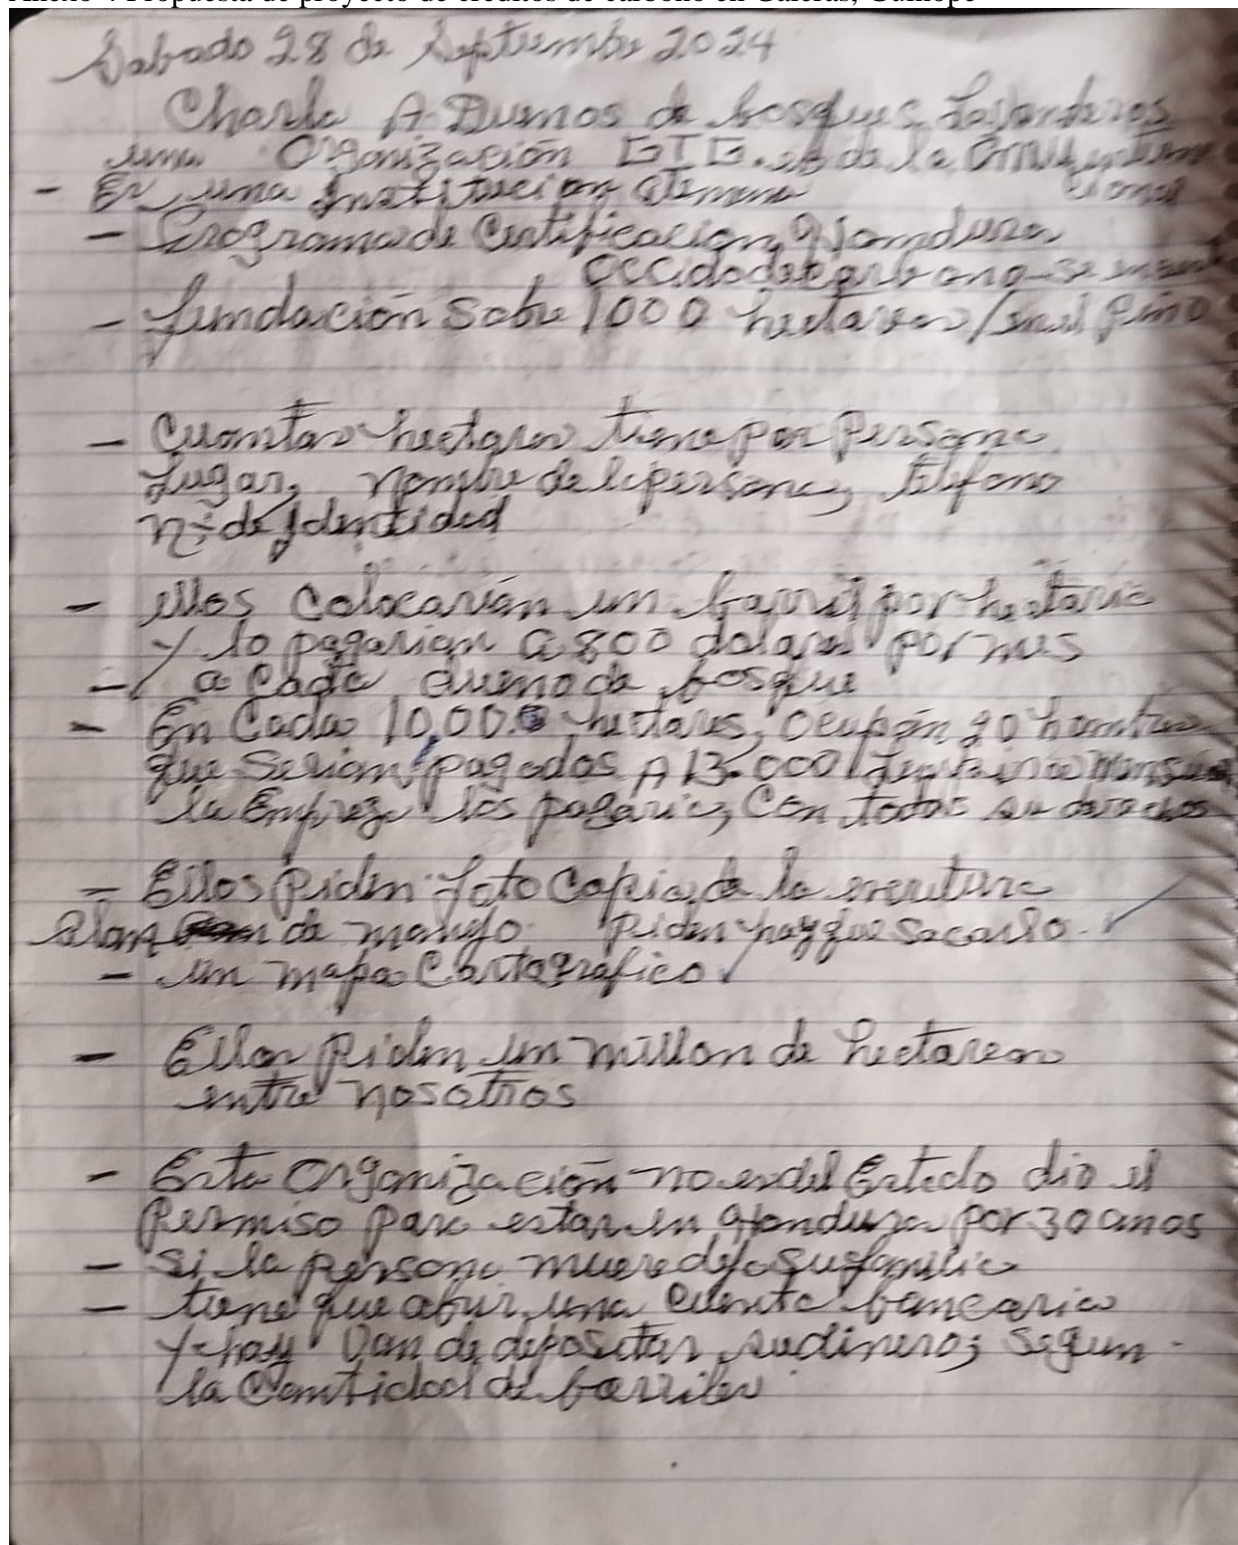 Anexo 4 Propuesta de proyecto de créditos de carbono en Galeras, Gualpope
Sabado 28 de Septiembre 2024
Charla A Duenos de bosques,
una Organización GIG. es de la
- Es una Institucion Alemana
- Programa de Certificacion, Honduras
Occido de carbono se
- fundación Sobre 1000 hectareas / en el Pino
- Cuantas hectareas tiene por Persona
Lugar, Nombre de la persona, telefono
N: de Identidad
- ellos Colocarían un barril por hectaria
y lo pagarian a 800 dolares por mes
- a cada dueno de bosque
- En Cada 10,000 hectares, Ocupan 20 hombres
que Serian pagados A 13.000 Lempiras
la Empreza los pagaria, Con todos su derechos
- Ellos Piden foto Copia de la escritura
Plan de manejo. Piden hay que Sacarlo.
- un mapa Cartografico
- Ellos Piden un millon de hectareas
entre nosotros
- Esta Organización no es del Estado dio el
Permiso para estar en Honduras por 30 anos
- Si la persona muere deja su familia
- tiene que abrir una cuenta bancaria
y hay Van de depositar su dinero; Segun
la Cantidad de barriles